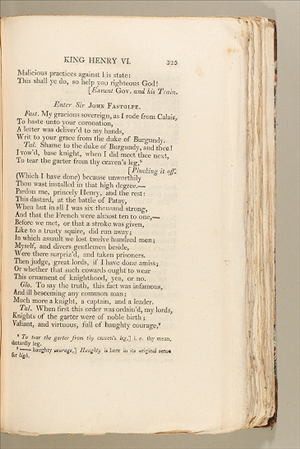 KING HENRY VI. 325
Malicious practices against his state:
This shall ye do, so help you righteous God!
[Exeunt Gov. and his Train.
Enter Sir JOHN FASTOLFE.
Fast. My gracious sovereign, as I rode from Calais,
To haste unto your coronation,
A letter was deliver'd to my hands,
Writ to your grace from the duke of Burgundy.
Tal. Shame to the duke of Burgundy, and thee!
I vow'd, base knight, when I did meet thee next,
To tear the garter from thy craven's leg,⁸
[Plucking it off.
(Which I have done) because unworthily
Thou wast installed in that high degree.—
Pardon me, princely Henry, and the rest:
This dastard, at the battle of Patay,
When but in all I was six thousand strong,
And that the French were almost ten to one,—
Before we met, or that a stroke was given,
Like to a trusty squire, did run away;
In which assault we lost twelve hundred men;
Myself, and divers gentlemen beside,
Were there surpriz'd, and taken prisoners.
Then judge, great lords, if I have done amiss;
Or whether that such cowards ought to wear
This ornament of knighthood, yea, or no.
Glo. To say the truth, this fact was infamous,
And ill beseeming any common man;
Much more a knight, a captain, and a leader.
Tal. When first this order was ordain'd, my lords,
Knights of the garter were of noble birth;
Valiant, and virtuous, full of haughty courage,⁹
⁸ To tear the garter from thy craven's leg,] i. e. thy mean,
dastardly leg.
⁹ —— haughty courage,] Haughty is here in its original sense
for high.